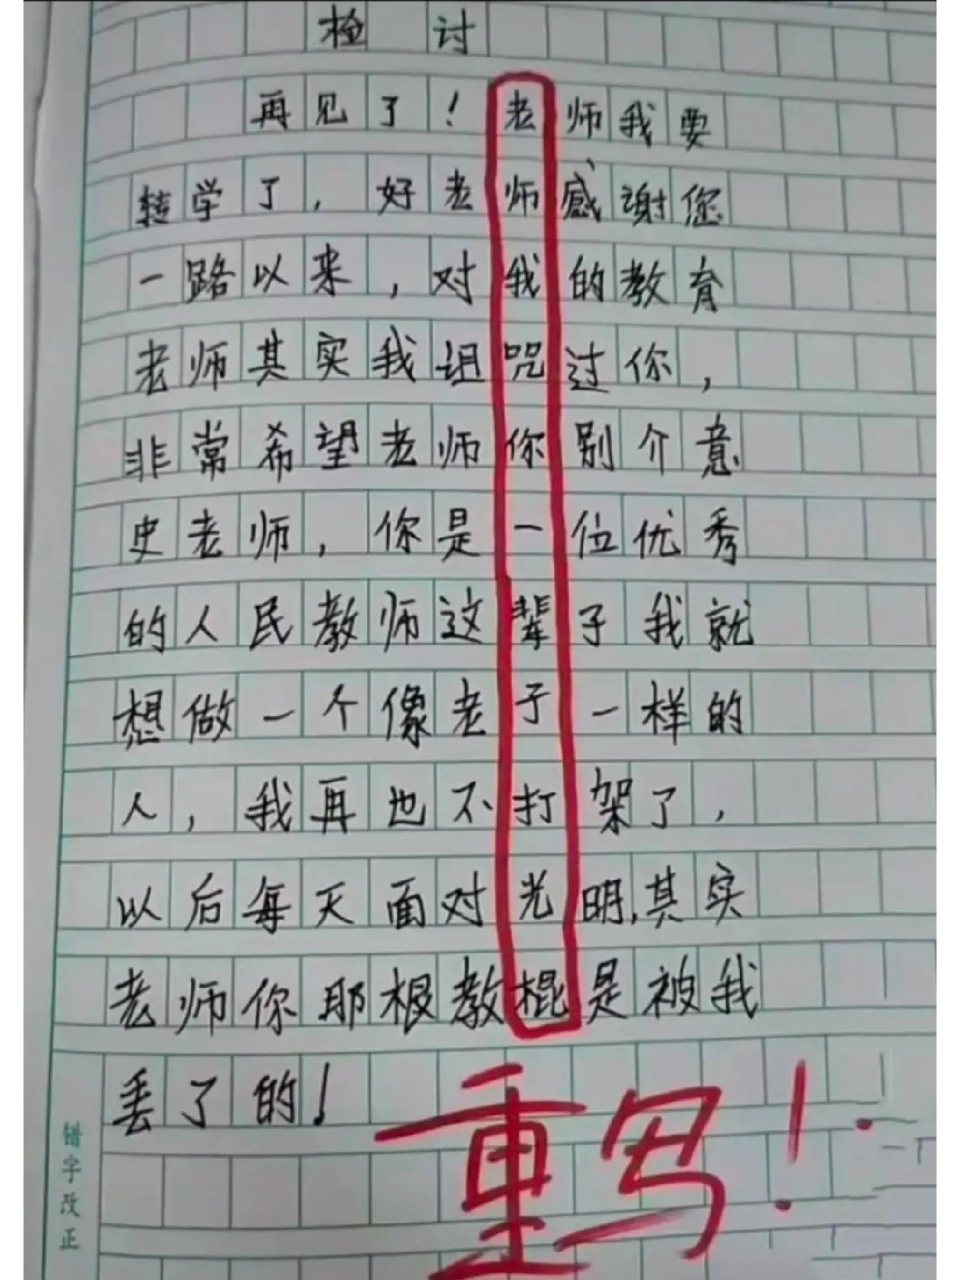 检讨
再见了！老师我要
转学了，好老师感谢您
一路以来，对我的教育
老师其实我诅咒过你，
非常希望老师你别介意
史老师，你是一位优秀
的人民教师这辈子我就
想做一个像老子一样的
人，我再也不打架了，
以后每天面对光明,其实
老师你耶根教棍是被我
丢了的！
重写！
错字改正